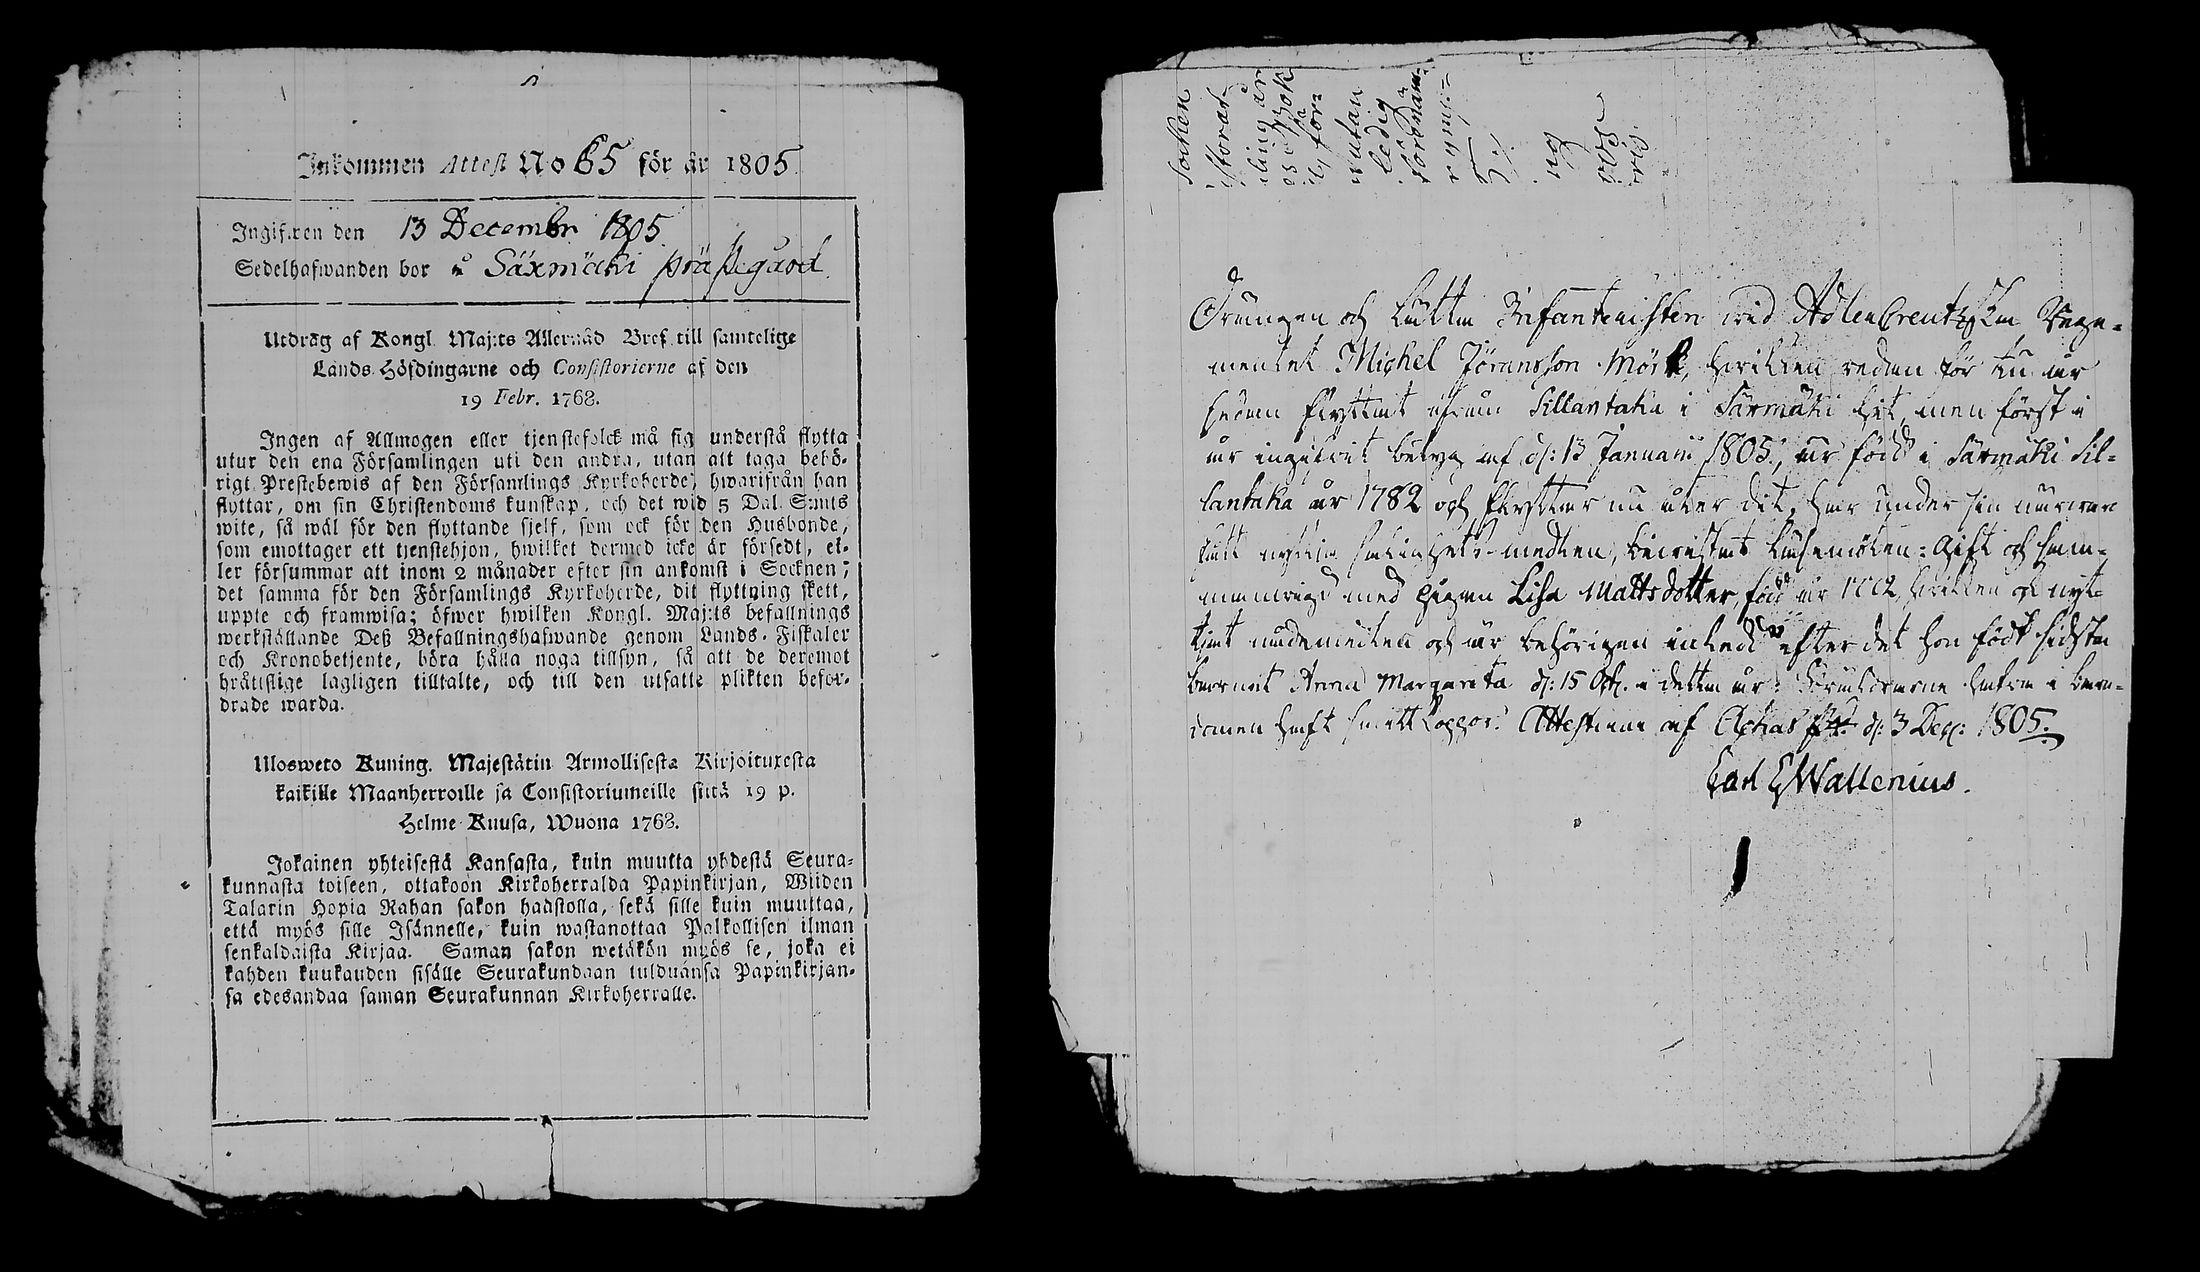 Inkommen Attest No 65 för år 1805
Ingifwen den 13 Decembr 1805.
Sedelhafwanden bor å Säxmäki prästegård.
Utdrag af Kongl. Maj:ts Allernåd Bref till samtelige
Lands Höfdingarne och Consistorierne af den
19 Febr. 1768.
Ingen af Allmogen eller tjenstefolck må sig understå flytta
utur den ena Församlingen uti den andra, utan att taga behö-
rigt Prestebewis af den Församlings Kyrkoherde, hwarifrån han
flyttar, om sin Christendoms kunskap, och det wid 5 Dal. S:mts
wite, så wäl för den flyttande sjelf, som ock för den Husbonde,
som emottager ett tjenstehjon, hwilket dermed icke är försedt, el-
ler försummar att inom 2 månader efter sin ankomst i Socknen,
det samma för den Församlings Kyrkoherde, dit flyttning skett,
uppte och framwisa; öfwer hwilken Kongl. Maj:ts befallnings
werkställande Deß Befallningshafwande genom Lands-Fiskaler
och Kronobetjente, böra hålla noga tillsyn, så att de deremot
bråttslige lagligen tilltalte, och till den utsatte plikten befor-
drade warda.
Ulosweto Kuning. Majestätin Armollisesta Kirjoituxesta
kaikille Maanherroille ja Consistoriumeille siitä 19 p.
Helme Kuusa, Wuona 1768.
Jokainen yhteisestä Kansasta, kuin muutta yhdestä Seura-
kunnasta toiseen, ottakoon Kirkoherralda Papinkirjan, Wiiden
Talarin Hopia Rahan sakon haastolla, sekä sille kuin muuttaa,
että myös sille Isännelle, kuin wastanottaa Palkollisen ilman
senkaldaista Kirjaa. Saman sakon wetäkön myös se, joka ei
kahden kuukauden sisälle Seurakundaan tulduansa Papinkirjan-
sa edesandaa saman Seurakunnan Kirkoherralle.
Drängen och Lätta Infanteristen wid Adlercreutzska Rege-
mentet Michel Jöransson Mörk, hwilken redan för tu år
sedan flyttat ifrån Sillantaka i Särmäki hit, men först i
år ingifwit betyg af d: 13 Januarii 1805, är född i Särmäki Sil-
lantaka år 1782 och flyttar nu åter dit, har under sin warelse
nyttja salighets-medlen, bewistat Läsemöten: Gift och sam-
manwigd med Pigan Lisa Mattsdotter, född år hwilken ock nytt-
jat nådemedlen och är behörigen inledd efter det hon födt sidsta
barnet Anna Margareta d: 15 Oct. i detta år: Föräldrarne hafwa i barn-
domen haft smittkoppor. Attesterar af Achas d: 3 Dec: 1805.
Carl G Wallenius.
Socken
ledig
och